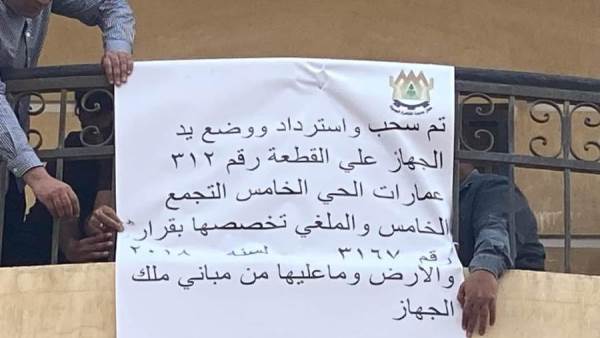 تم سحب واسترداد ووضع يد
الجهاز علي القطعة رقم ٣١٢
عمارات الحي الخامس التجمع
الخامس والملغي تخصصها بقرار
رقم ٣١٦٧ لسنه ٢٠١٨
والارض وماعليها من مباني ملك
الجهاز